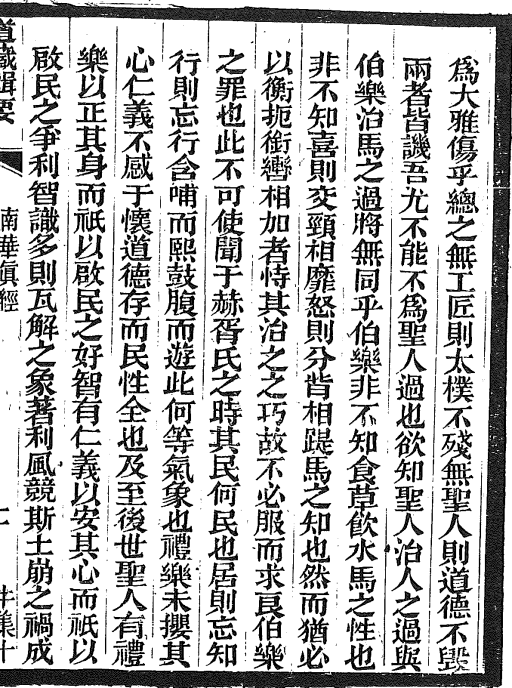 爲大雅傷乎總之無工匠則太樸不殘無聖人則道德不毀
兩者皆譏吾尤不能不爲聖人過也欲知聖人治人之過與
伯樂治馬之過將無同乎伯樂非不知食草飲水馬之性也
非不知喜則交頸相靡怒則分背相踶馬之知也然而猶必
以衡扼銜轡相加者恃其治之之巧故不必服而求良伯樂
之罪也此不可使聞于赫胥氏之時其民何民也居則忘知
行則忘行含哺而熙鼓腹而遊此何等氣象也禮樂未攖其
心仁義不感于懷道德存而民性全也及至後世聖人有禮
樂以正其身而祇以啟民之好智有仁義以安其心而祇以
啟民之爭利智識多則瓦解之象著利風競斯土崩之禍成
道藏輯要
南華眞經
牛集十